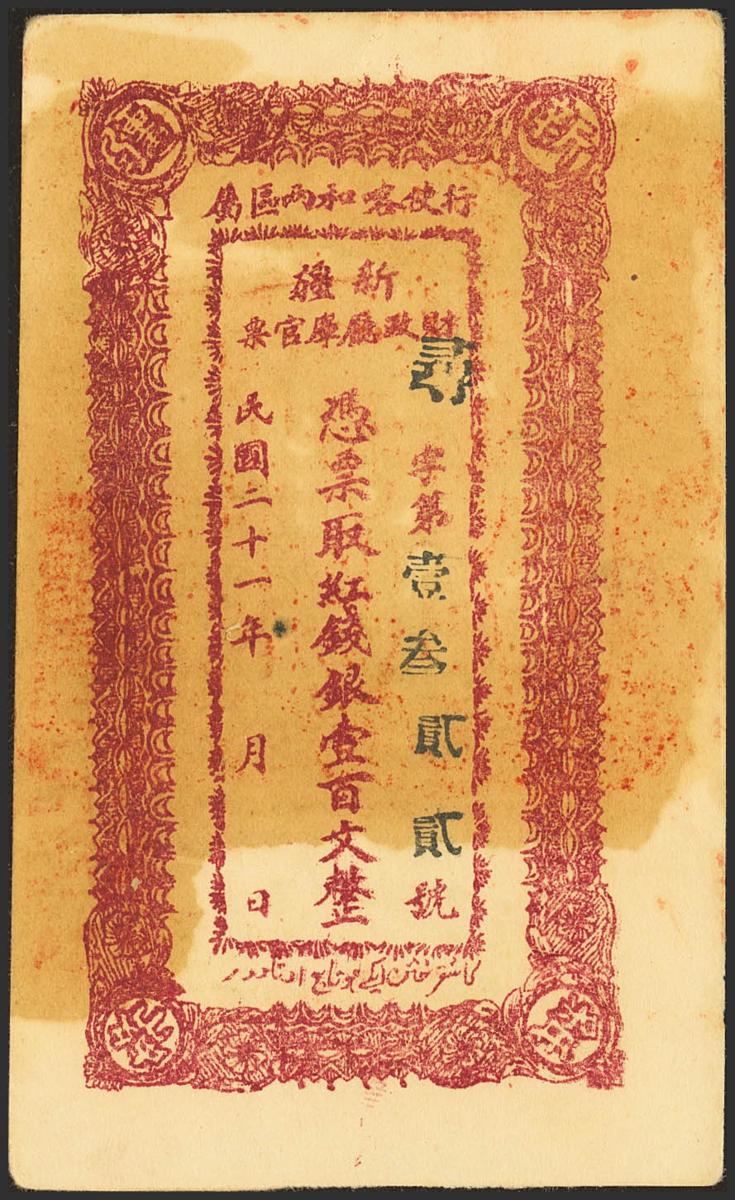 新疆
行使喀和两區
新疆
財政廳庫官票
尋字第壹叁貳貳號
憑票取紅錢銀壹百文整
民國二十一年 月 日